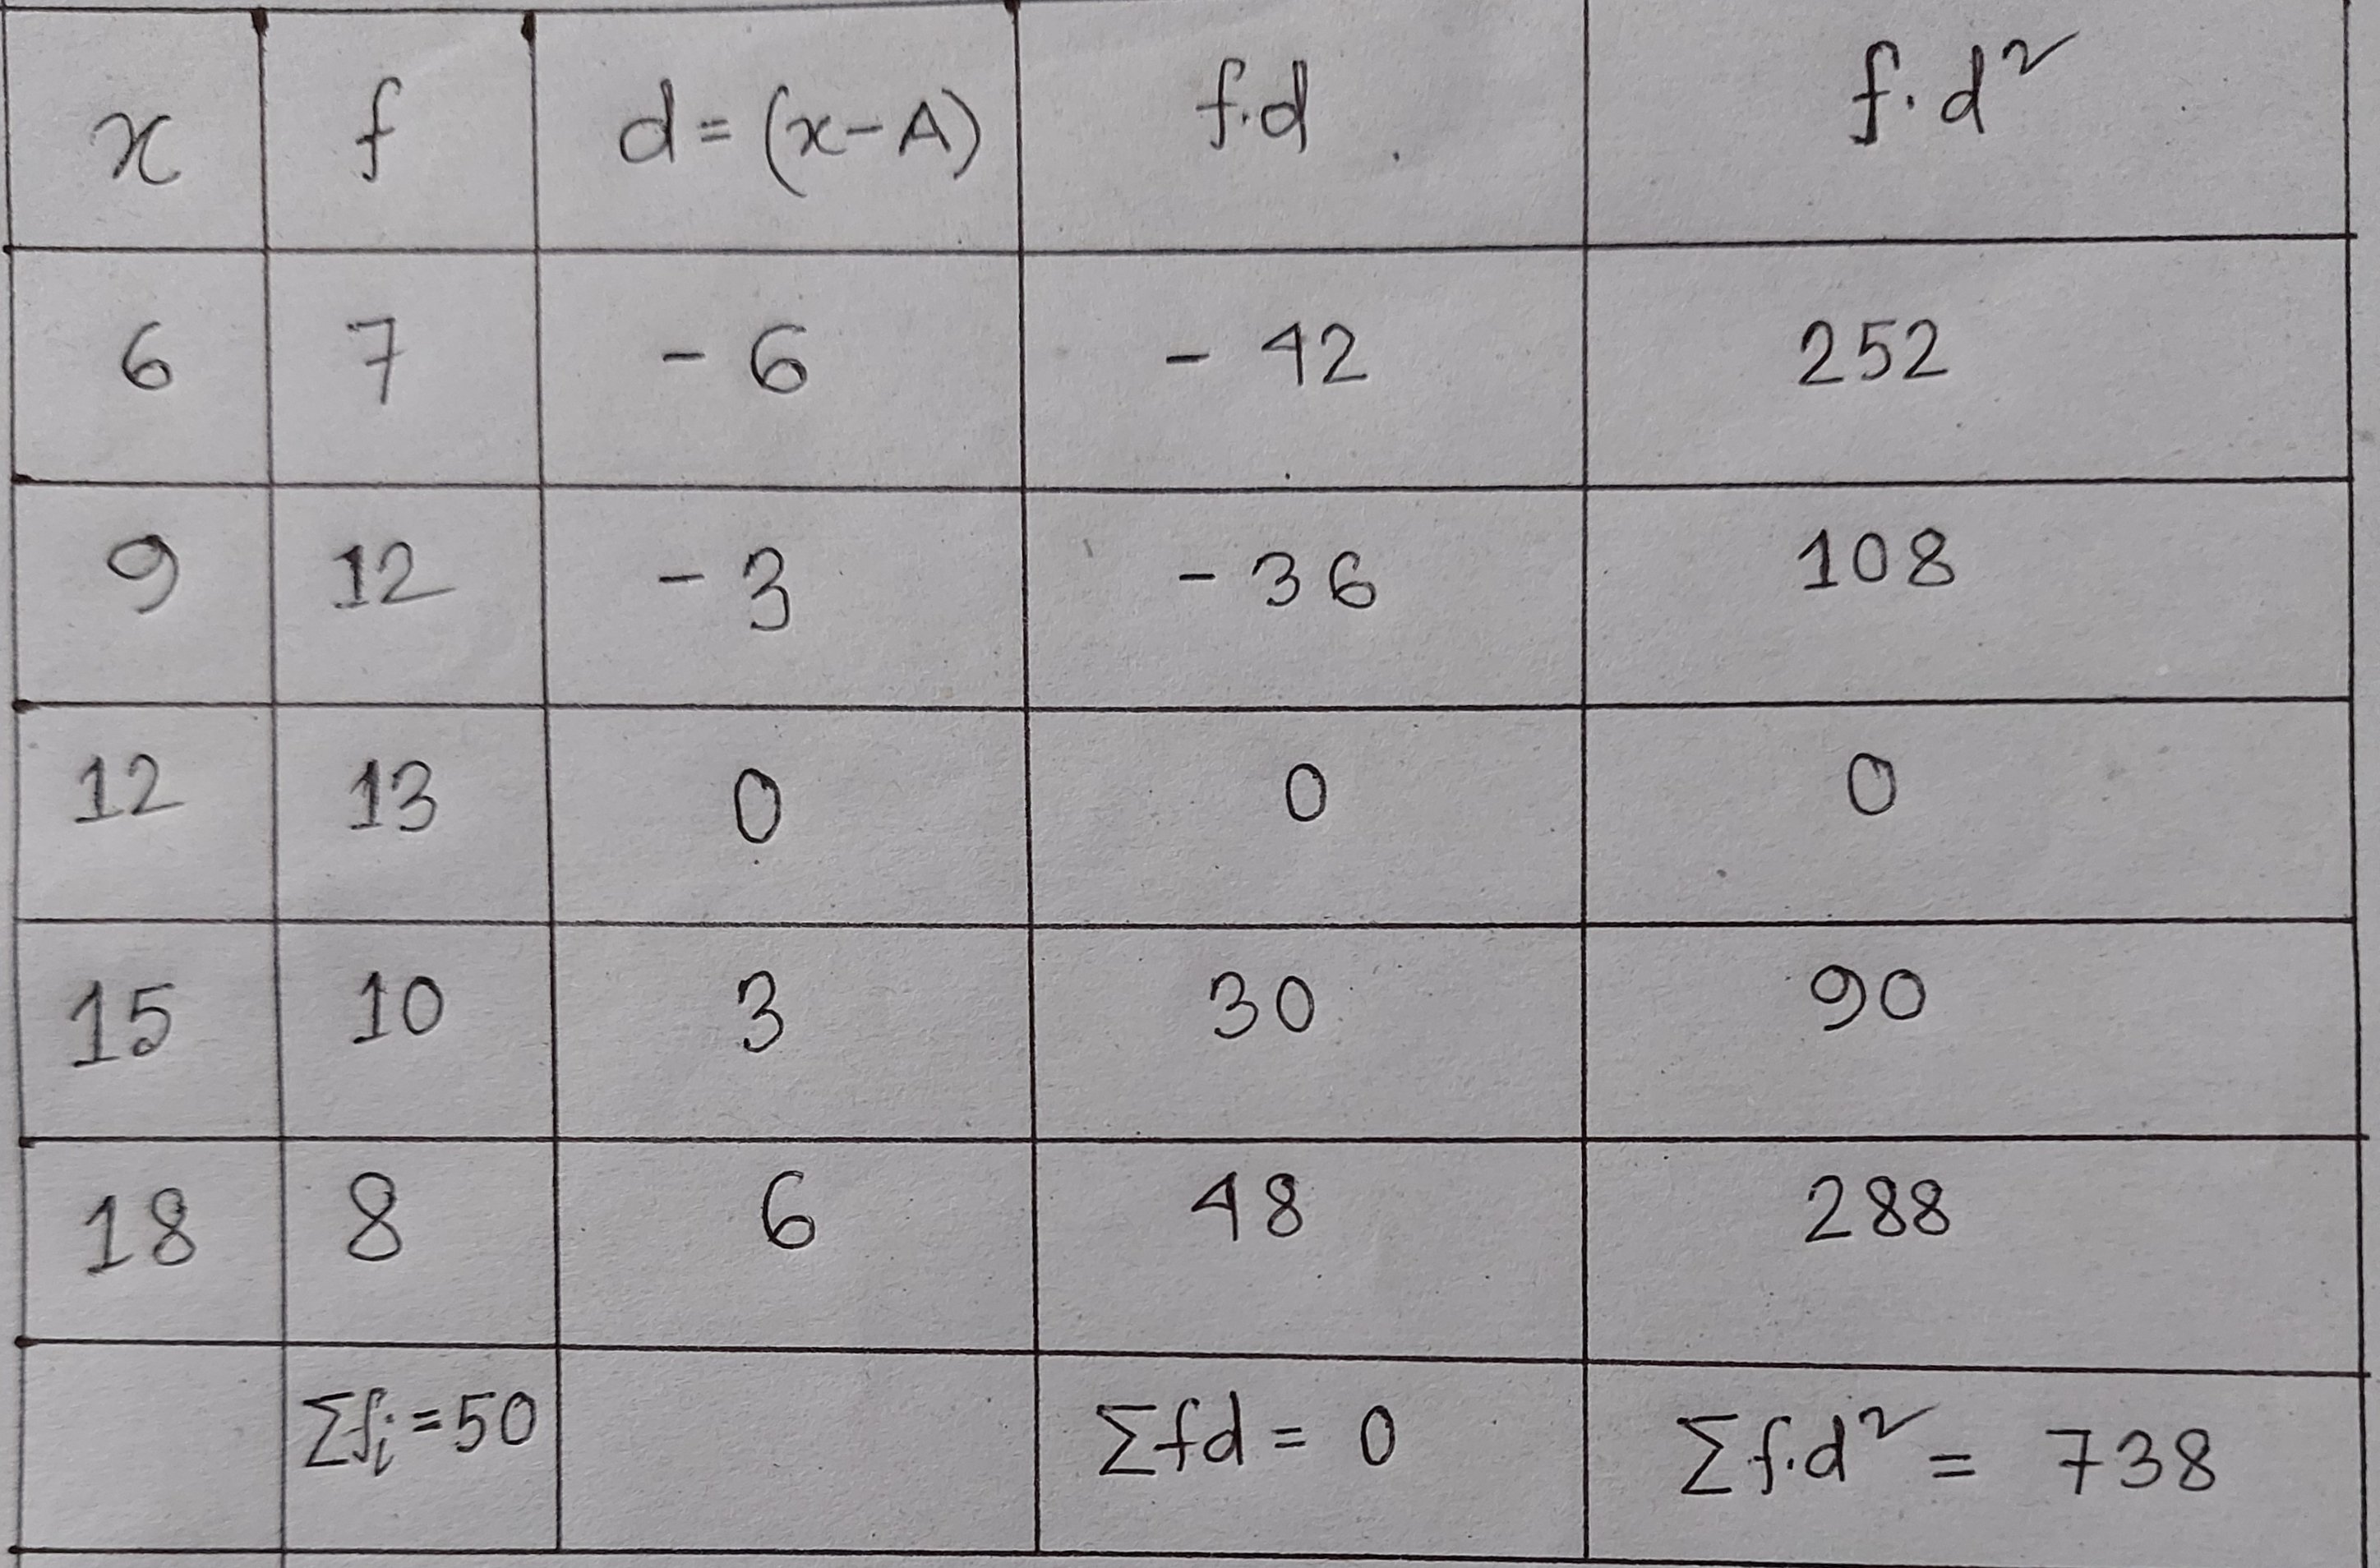 x f d = (x-A) f.d f.d²
6 7 -6 -42 252
9 12 -3 -36 108
12 13 0 0 0
15 10 3 30 90
18 8 6 48 288
Σfi = 50 Σfd = 0 Σf.d² = 738